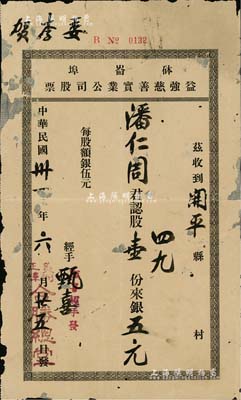 B Nº 0132
砵崙埠
益強慈善實業公司股票
茲收到開平縣 村
四九
潘仁周君認股壹份來銀五元
每股額銀伍元
經手甄喜
中華民國卅一年六月廿五日發